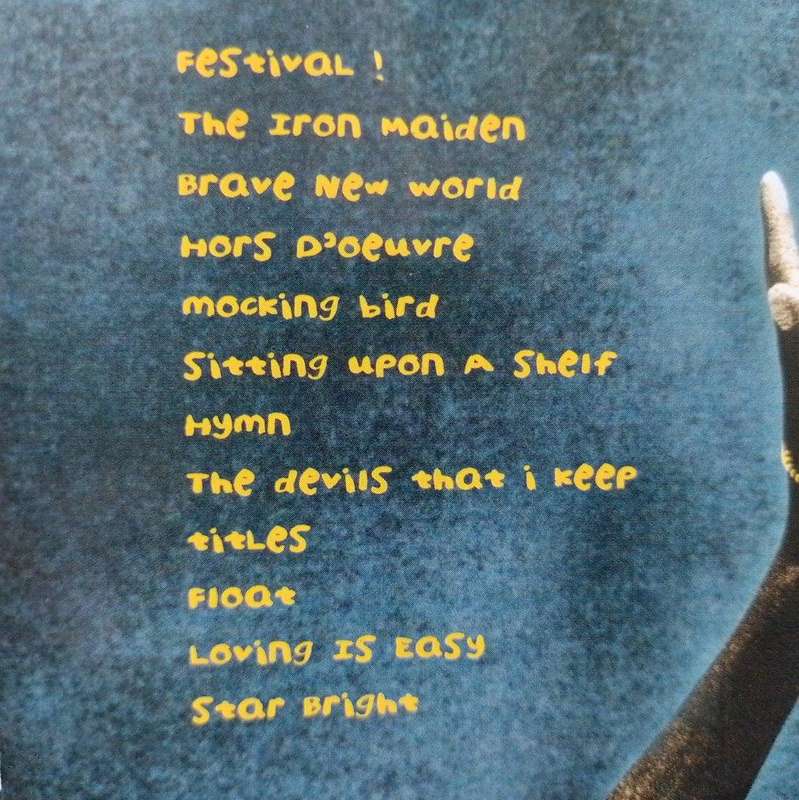 Festival !
The Iron Maiden
Brave New World
Hors D'oeuvre
mocking bird
Sitting upon A Shelf
Hymn
The devils that i keep
titles
Float
Loving Is Easy
Star Bright